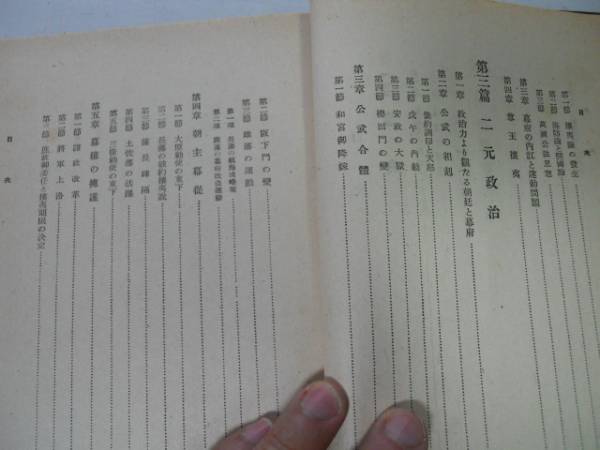 目次
第一節 攘夷論の發生
第二節 海防論と開國論
第三節
第三章 幕府の內訌と運動問題
第四章 尊王攘夷
第三篇 二元政治
第一章 政治力より觀たる朝廷と幕府
第二章 公武の相剋
第一節 條約調印と天怒
第二節 戊午の內勅
第三節 安政の大獄
第四節 櫻田門の變
第三章 公武合體
第一節 和宮御降嫁
第二節 坂下門の變
第三節 雄藩の運動
第一項 長藩の航海遠略策
第二項 薩藩の幕府改造運動
第四章 朝主幕從
第一節 大原勅使の東下
第二節 長藩の破約攘夷說
第三節 薩長疎隔
第四節 土佐藩の活躍
第五節 三條勅使の東下
第五章 幕權の擁護
第一節 諸政改革
第二節 將軍上洛
第三節 庶政御委任と攘夷期限の決定
目次